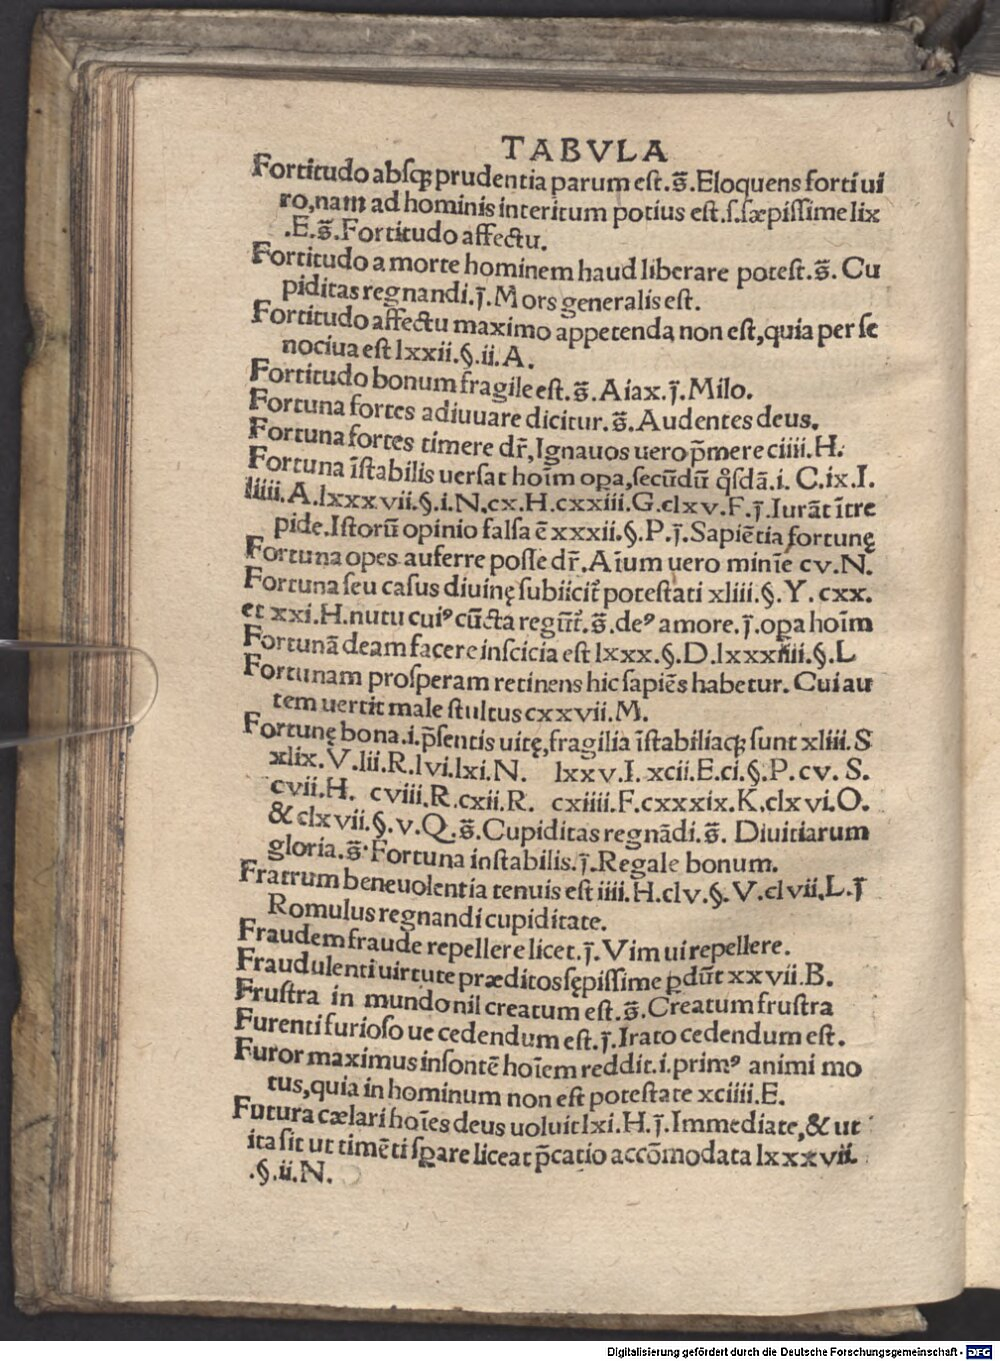 TABVLA
Fortitudo absqꝫ prudentia parum est.s̄.Eloquens forti ui
ro,nam ad hominis interitum potius est.ſ.sæpissime lix
.E.s̄.Fortitudo affectu.
Fortitudo a morte hominem haud liberare potest.s̄. Cu
piditas regnandi.j̄.Mors generalis est.
Fortitudo affectu maximo appetenda non est,quia per se
nociua est lxxii.§.ii.A.
Fortitudo bonum fragile est.s̄.Aiax.j̄.Milo.
Fortuna fortes adiuuare dicitur.s̄.Audentes deus.
Fortuna fortes timere dr̄,Ignauos uero p̄mere ciiii.H.
Fortuna īstabilis uersat hoīm oꝑa,secūdū q̊sdā.i. C.ix.I.
liiii.A.lxxxvii.§.i.N.cx.H.cxxiii.G.clxv.F.j̄.Iurāt ītre
pide.Istorū opinio falsa ē xxxii.§.P.j̄.Sapiētia fortunę
Fortuna opes auferre posse dr̄.Aīum uero minīe cv.N.
Fortuna seu casus diuinę subiicit̄ potestati xliii.§.Y.cxx.
et xxi.H.nutu cuiꝰ cūcta regūt̄.s̄.deꝰ amore.j̄.oꝑa hoīm
Fortunā deam facere inscicia est lxxx.§.D.lxxxiiii.§.L
Fortunam prosperam retinens hic sapiēs habetur. Cui au
tem uertit male stultus cxxvii.M.
Fortunę bona.i.p̄sentis uitę,fragilia īstabiliaqꝫ sunt xliii.S
xlix.V.lii.R.lvi.lxi.N. lxxv.I.xcii.E.ci.§.P.cv.S.
cvii.H. cviii.R.cxii.R. cxiiii.F.cxxxix.K.clxvi.O.
& clxvii.§.v.Q.s̄.Cupiditas regnādi.s̄. Diuitiarum
gloria.s̄.Fortuna instabilis.j̄.Regale bonum.
Fratrum beneuolentia tenuis est iiii.H.clv.§.V.clvii.L.j̄
Romulus regnandi cupiditate.
Fraudem fraude repellere licet.j̄.Vim ui repellere.
Fraudulenti uirtute præditos sępissime ꝑdūt xxvii.B.
Frustra in mundo nil creatum est.s̄.Creatum frustra
Furenti furioso ue cedendum est.j̄.Irato cedendum est.
Furor maximus insontē hoīem reddit.i.primꝰ animi mo
tus,quia in hominum non est potestate xciiii.E.
Futura cælari hoīes deus uoluit lxi.H.j̄.Immediate,& ut
ita sit ut timēti sꝑare liceat p̄catio accōmodata lxxxvii.
.§.ii.N.
Digitalisierung gefördert durch die Deutsche Forschungsgemeinschaft - DFG